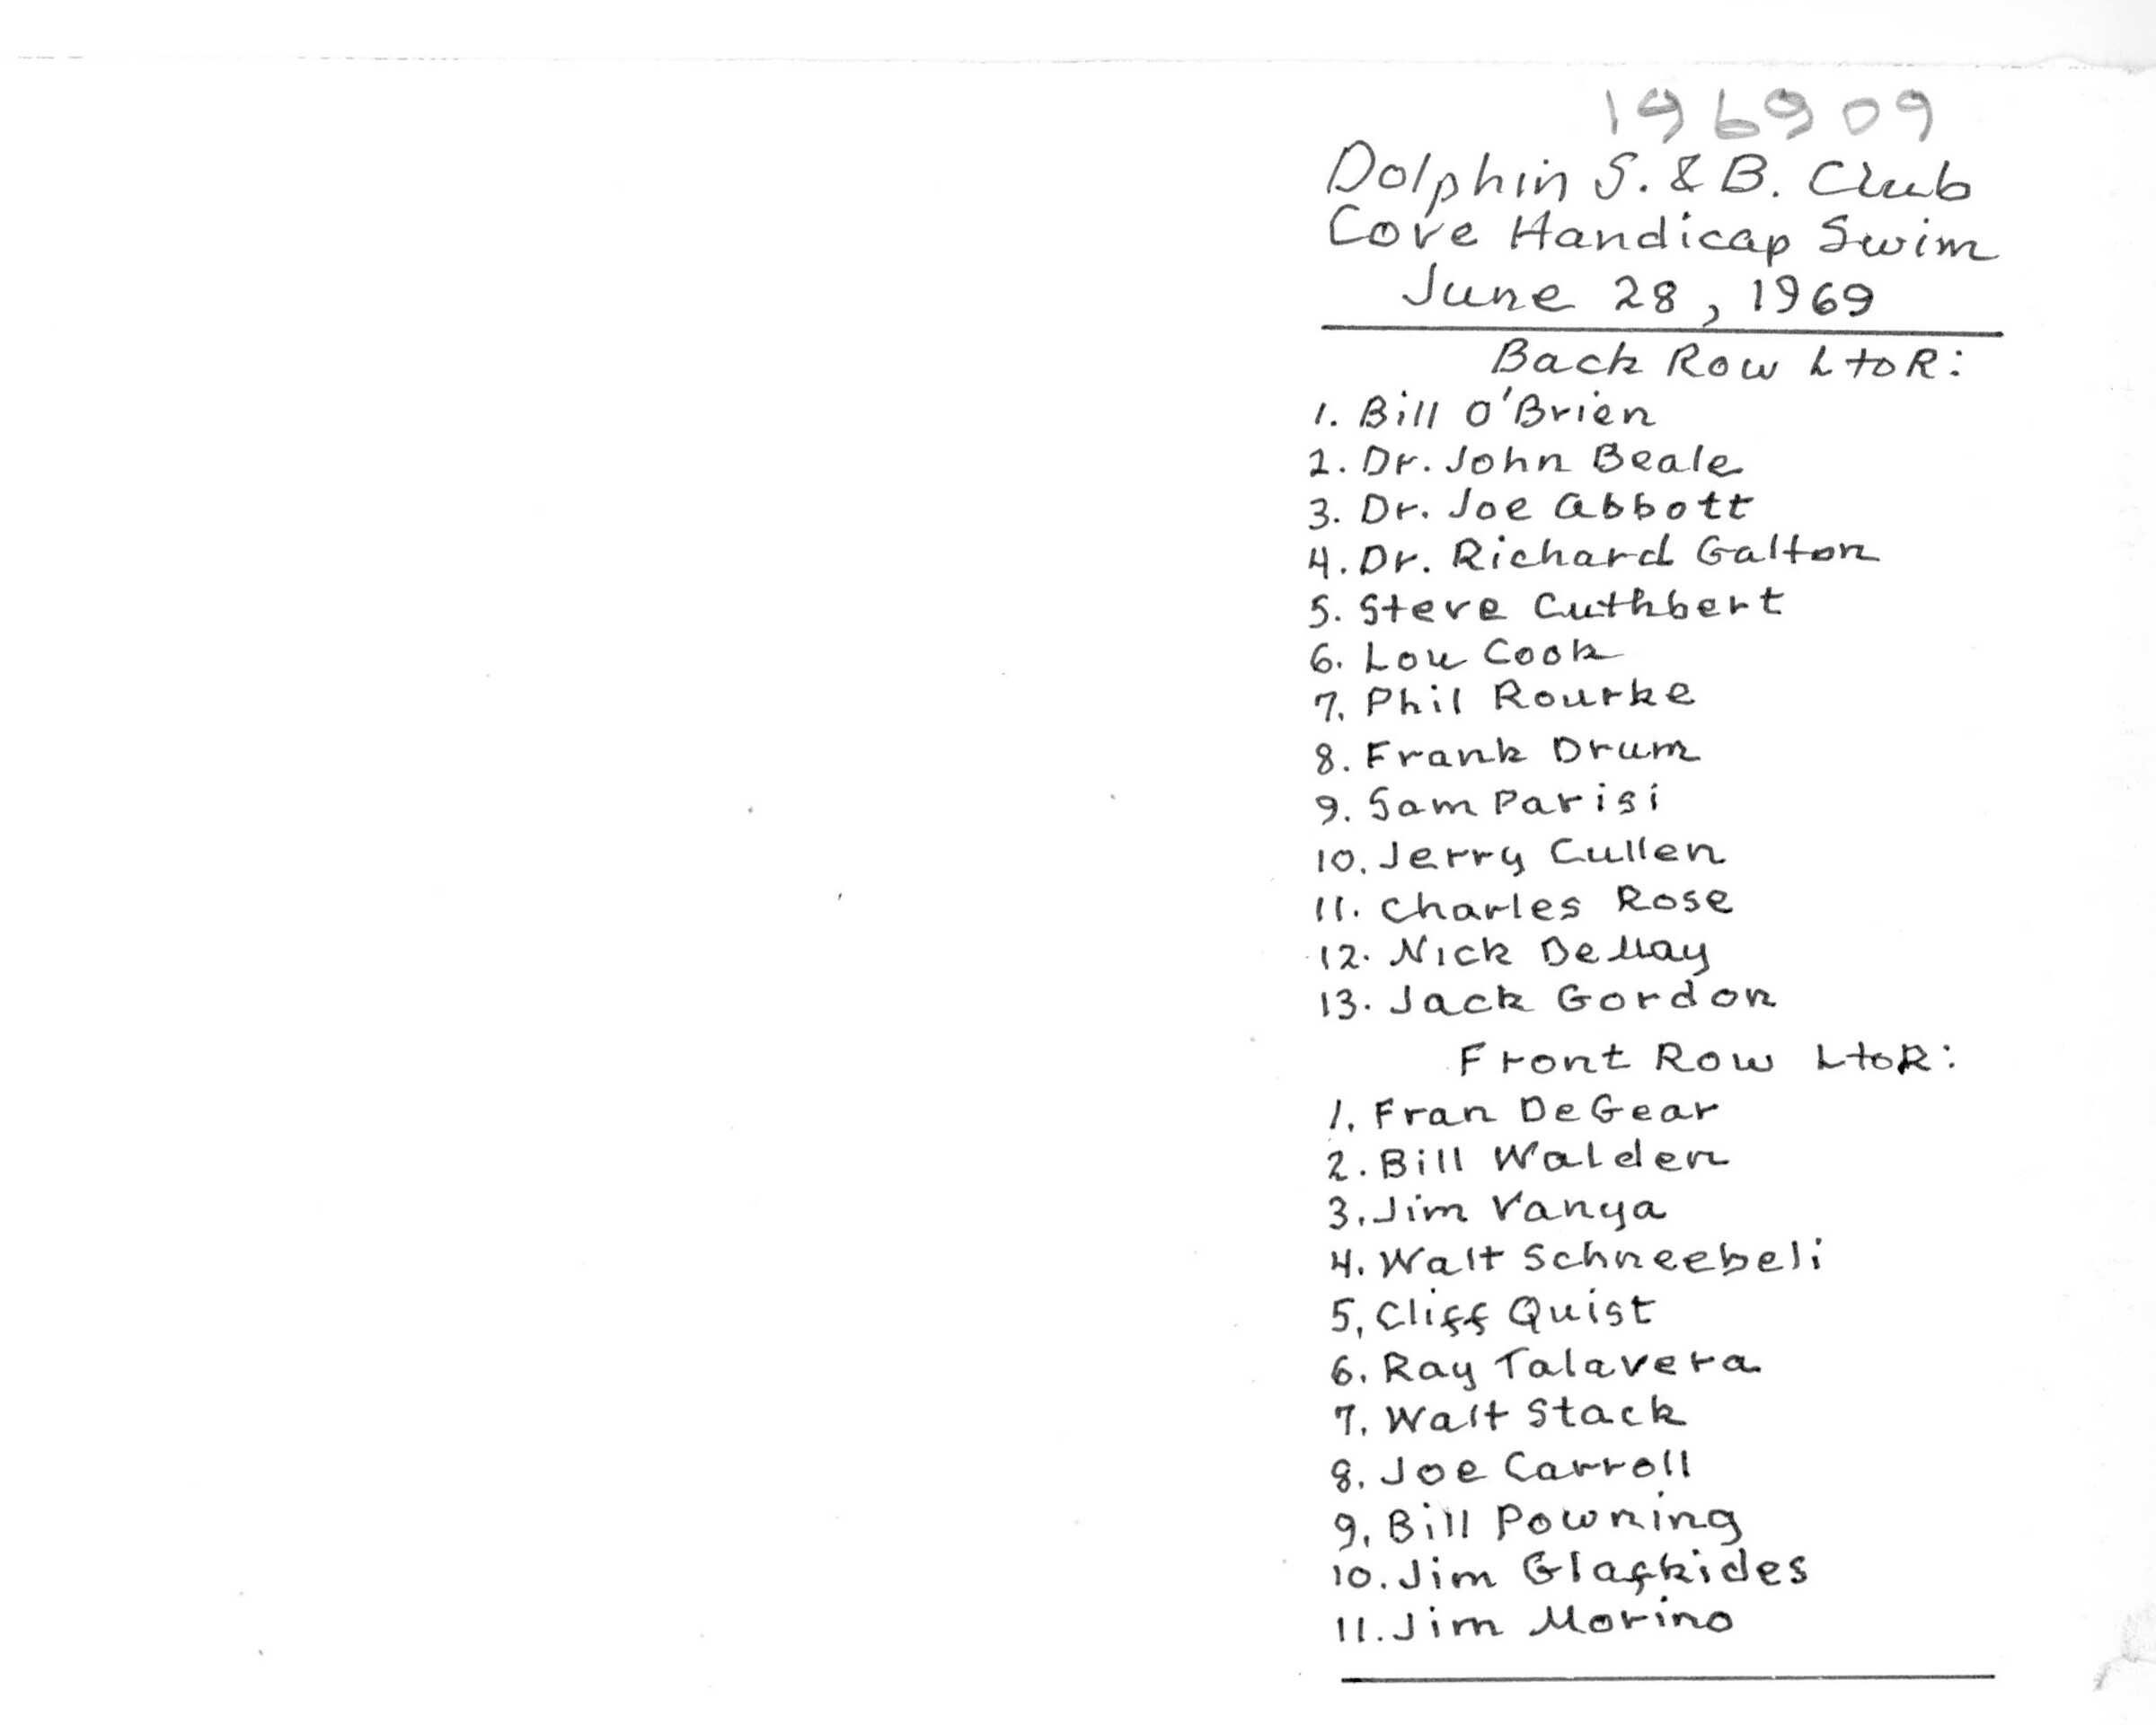 196909
Dolphin S. & B. Club
Cove Handicap Swim
June 28, 1969
Back Row L to R:
1. Bill O'Brien
2. Dr. John Beale
3. Dr. Joe Abbott
4. Dr. Richard Galton
5. Steve Cuthbert
6. Lou Cook
7. Phil Rourke
8. Frank Drum
9. Sam Parisi
10. Jerry Cullen
11. Charles Rose
12. Nick DeMay
13. Jack Gordon
Front Row L to R:
1. Fran DeGear
2. Bill Walden
3. Jim Vanya
4. Walt Schneebeli
5, Cliff Quist
6. Ray Talavera
7. Walt Stack
8. Joe Carroll
9. Bill Powning
10. Jim Glafkides
11. Jim Morino